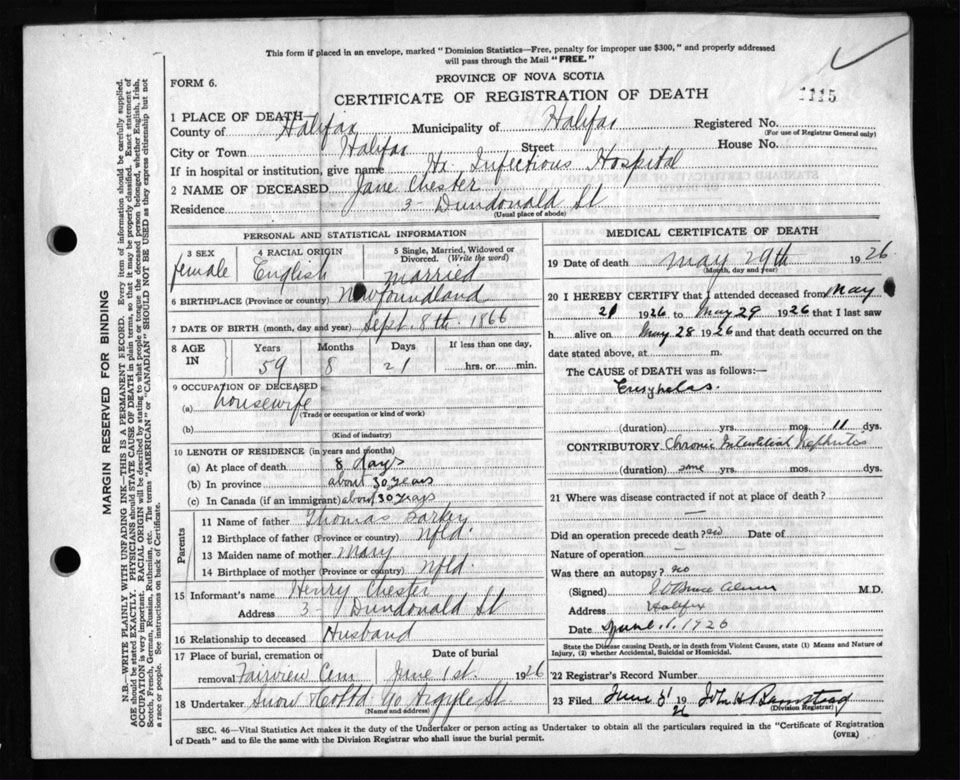 This form if placed in an envelope, marked "Dominion Statistics—Free, penalty for improper use $300," and properly addressed
will pass through the Mail "FREE."
PROVINCE OF NOVA SCOTIA
FORM 6.
CERTIFICATE OF REGISTRATION OF DEATH
1115
1 PLACE OF DEATH—
County of Halifax Municipality of Halifax Registered No.
(For use of Registrar General only)
City or Town Halifax Street House No.
If in hospital or institution, give name Hx. Infectious Hospital
2 NAME OF DECEASED Jane Chester
Residence 3 Dundonald St
(Usual place of abode)
PERSONAL AND STATISTICAL INFORMATION
3 SEX 4 RACIAL ORIGIN 5 Single, Married, Widowed or
Divorced. (Write the word)
female English married
6 BIRTHPLACE (Province or country) Newfoundland
7 DATE OF BIRTH (month, day and year) Sept. 8th. 1866
8 AGE IN Years Months Days If less than one day,
59 8 21 hrs. or min.
9 OCCUPATION OF DECEASED
(a) housewife
(Trade or occupation or kind of work)
(b)
(Kind of industry)
10 LENGTH OF RESIDENCE (in years and months)
(a) At place of death 8 days
(b) In province about 30 years
(c) In Canada (if an immigrant) about 30 years
Parents
11 Name of father Thomas
12 Birthplace of father (Province or country) Nfld.
13 Maiden name of mother Mary
14 Birthplace of mother (Province or country) Nfld.
15 Informant's name Henry Chester
Address 3 - Dundonald St
16 Relationship to deceased Husband
17 Place of burial, cremation or Date of burial
removal Fairview Cem June 1st. 1926
18 Undertaker Snow & Co Ltd 90 Argyle St
(Name and address)
MEDICAL CERTIFICATE OF DEATH
19 Date of death May 29th 1926
(Month, day and year)
20 I HEREBY CERTIFY that I attended deceased from May
21 1926 to May 29 1926 that I last saw
h alive on May 28 1926 and that death occurred on the
date stated above, at m.
The CAUSE of DEATH was as follows:—
Erysipelas.
(duration) yrs. mos. 11 dys.
CONTRIBUTORY Chronic Interstitial Nephritis
(duration) some yrs. mos. dys.
21 Where was disease contracted if not at place of death?
—
Did an operation precede death? no Date of
Nature of operation —
Was there an autopsy? no
(Signed) M.D.
Address Halifax
Date June 1. 1926
State the Disease causing Death, or in death from Violent Causes, state (1) Means and Nature of
Injury, (2) whether Accidental, Suicidal or Homicidal.
22 Registrar's Record Number
23 Filed June 1926
(Division Registrar)
SEC. 46—Vital Statistics Act makes it the duty of the Undertaker or person acting as Undertaker to obtain all the particulars required in the "Certificate of Registration
of Death" and to file the same with the Division Registrar who shall issue the burial permit.
(OVER)
MARGIN RESERVED FOR BINDING
N.B.—WRITE PLAINLY WITH UNFADING INK—THIS IS A PERMANENT RECORD. Every item of information should be carefully supplied.
AGE should be stated EXACTLY. PHYSICIANS should STATE CAUSE OF DEATH in plain terms, so that it may be properly classified. Exact statement of
OCCUPATION is very important. RACIAL ORIGIN will be described by stating to what people or tongue the deceased person belonged, whether English, Irish,
Scotch, French, German, Russian, Ruthenian, etc. The terms "AMERICAN" or "CANADIAN" SHOULD NOT BE USED as they express citizenship but not
a race or people. See instructions on back of Certificate.